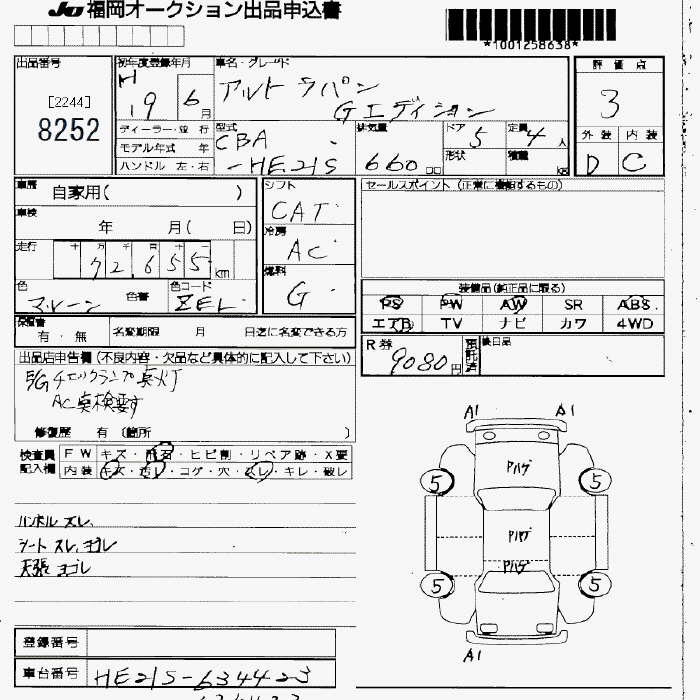 JU 福岡オークション出品申込書
*1001258638*
出品番号
[2244]
8252
初年度登録年月
H 19 6 月
車名・グレード
アルト ラパン
Gエディション
評価点
3
外装 内装
D C
ディーラー・並行
モデル年式 年
ハンドル 左・右
型式
CBA
-HE21S
排気量
660 cc
ドア 5
形状
定員 4 人
積載 kg
車歴
自家用( )
車検
年 月( 日)
走行
十 万 千 百 十
72,655 km
色
マルーン 色替
色コード
ZEL
シフト
CAT
冷房
AC
燃料
G
セールスポイント (正常に機能するもの)
装備品(純正品に限る)
PS PW AW SR ABS
エアB TV ナビ カワ 4WD
保証書
有・無
名変期限 月 日迄に名変できる方
R券 9080 円
預託済
後日品
出品店申告欄 (不良内容・欠品など具体的に記入して下さい)
E/Gチェックランプ点灯
AC点検要す
修復歴 有 (箇所 )
検査員記入欄
FW キズ・飛石・ヒビ割・リペア跡・X要
内装 キズ・汚レ・コゲ・穴・スレ・キレ・破レ
ハンドル スレ,
シート スレ,ヨゴレ
天張 ヨゴレ
A1 A1
5 5
5 5
A1
登録番号
車台番号 HE21S-634423